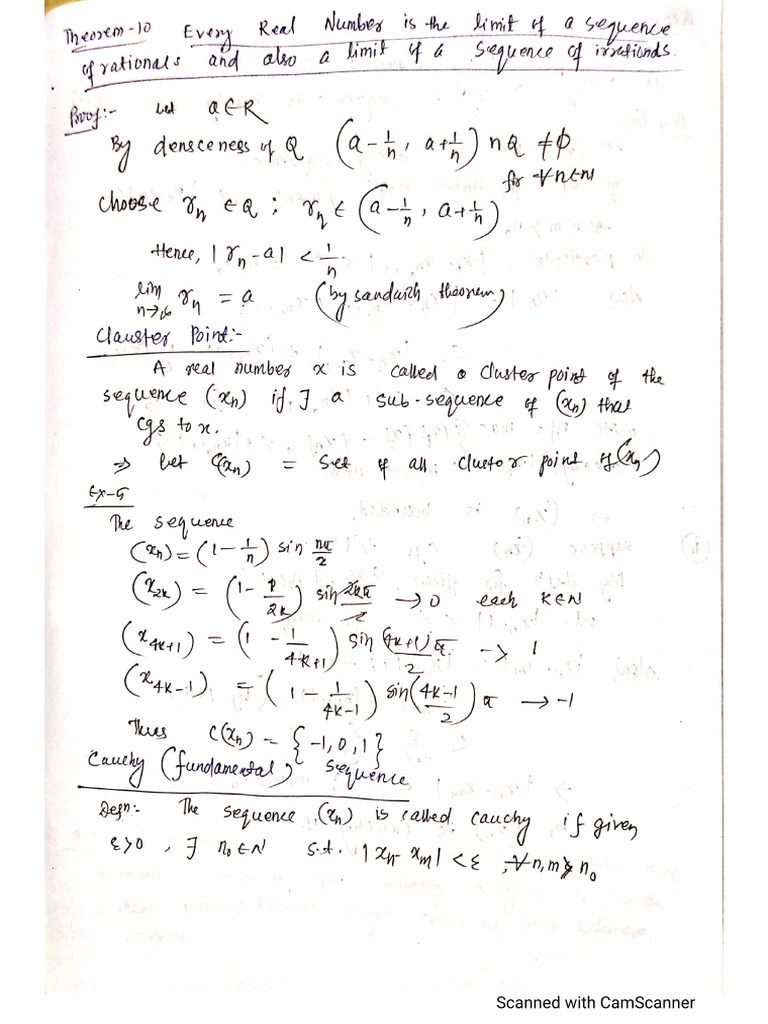 Theorem-10 Every Real Number is the limit of a sequence
of rationals and also a limit of a sequence of irrationals.
Proof:- Let a∈R
By denseness of Q (a-1/n, a+1/n) ∩ Q ≠ϕ
for ∀n∈N
Choose rn ∈ Q ; rn ∈ (a-1/n, a+1/n)
Hence, |rn-a| < 1/n
lim n→∞ rn = a (by sandwich theorem)
Clauster Point:-
A real number x is called a cluster point of the
sequence (xn) if ∃ a sub-sequence of (xn) that
cgs to x.
⇒ Let C(xn) = Set of all clustor point of (xn)
Ex-5
The sequence
(xn) = (1-1/n) sin nπ/2
(x2k) = (1-1/2k) sin 2kπ/2 → 0 each k∈N.
(x4k+1) = (1-1/4k+1) sin (4k+1)π/2 → 1
(x4k-1) = (1-1/4k-1) sin(4k-1/2)π → -1
Thus C(xn) = {-1,0,1}
Cauchy (fundamental) sequence
Defn:- The sequence (xn) is called cauchy if given
ε>0, ∃ n0∈N s.t. |xn-xm|<ε, ∀n,m≥n0
Scanned with CamScanner